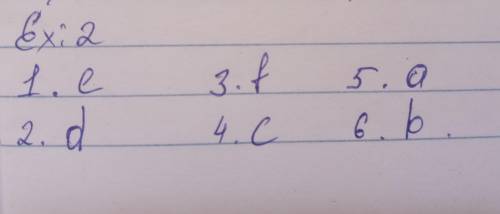 Ex: 2
1. e 3. f 5. a
2. d 4. c 6. b.